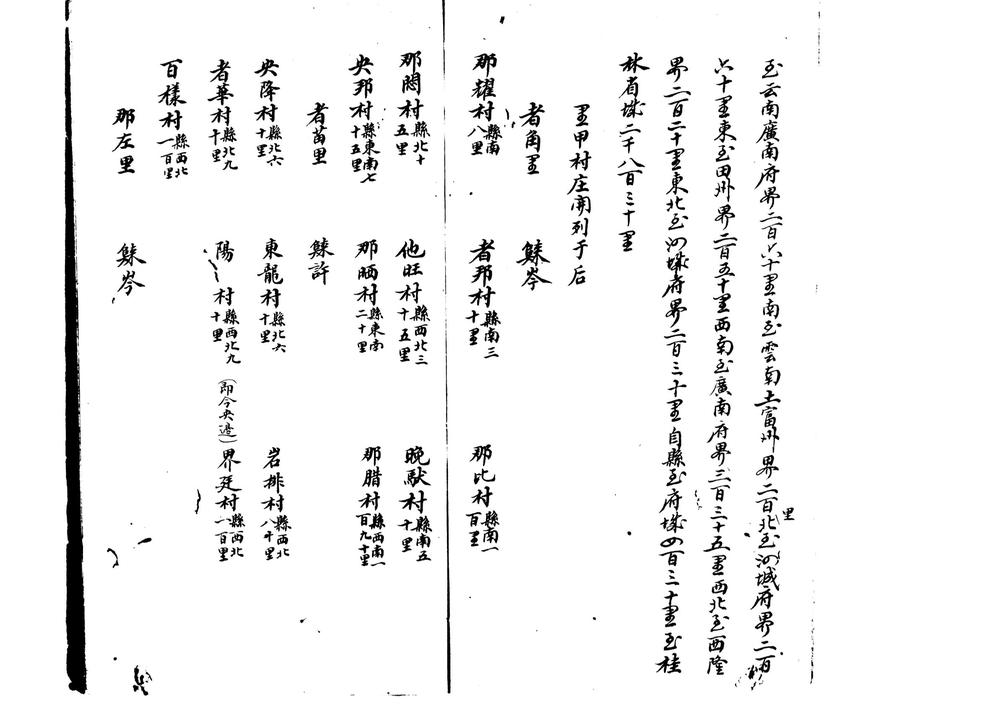 至云南廣南府界二百六十里南至雲南土富州界二百里北至泗城府界二百
六十里東至田州界二百五十里西南至廣南府界三百三十五里西北至西隆
界二百二十里東北至泗城府界二百三十里自縣至府城四百三十里至桂
林省城二千八百三十里
里甲村庄開列于后
者角里 鯀岑
那耀村縣南八里 者邦村縣南三十里 那比村縣南一百里
那悶村縣北十五里 他旺村縣西北三十五里 晚馱村縣南五十里
央邦村縣東南七十五里 那晒村縣東南二十里 那腊村縣西南一百九十里
者苗里 鯀許
央降村縣北六十里 東龍村縣北六十里 岩排村縣西北八十里
者華村縣北九十里 陽村縣西北九十里(即今央邉) 界廷村縣西北一百里
百樣村縣西北一百里
那左里 鯀岑